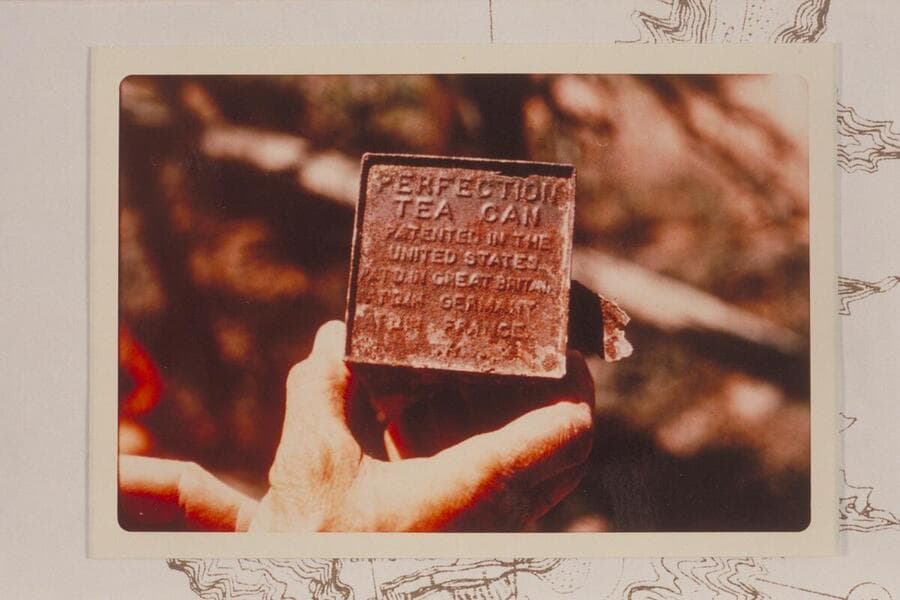 PERFECTION
TEA CAN
PATENTED IN THE
UNITED STATES.
IN GREAT BRITAIN
GERMANY
FRANCE